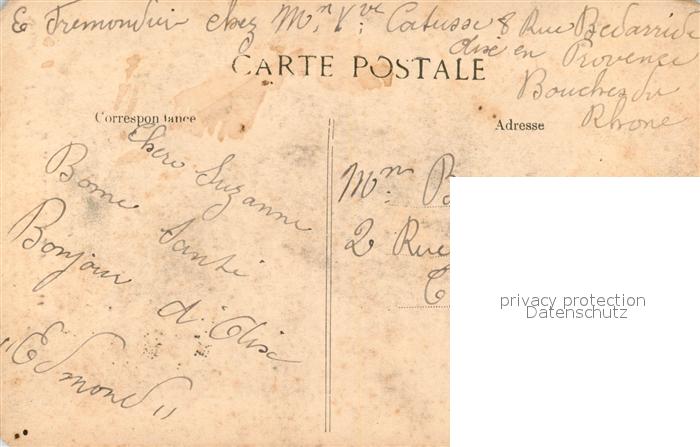 E Tremondier chez Mn Vve Catusse 8 Rue Bedarride
Aix en Provence
Bouches du
Rhone
CARTE POSTALE
Correspondance
Adresse
Chere Suzanne
Bonne Santé
Bonjour d'Aix
"Edmond"
Mn B
2 Rue
privacy protection
Datenschutz